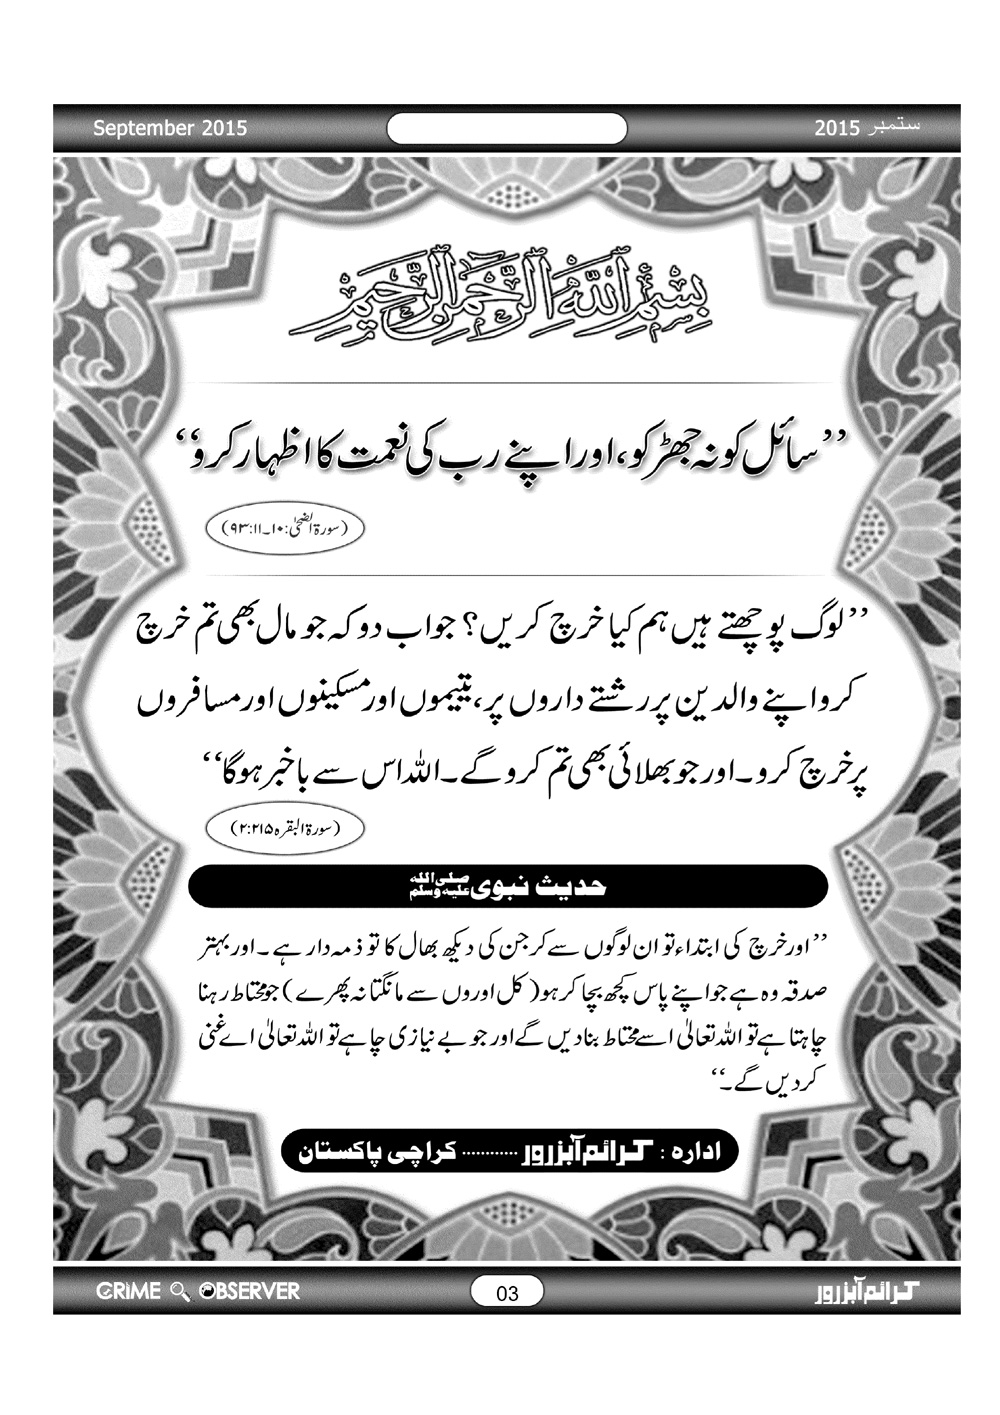 September 2015
ستمبر 2015
بسم اللہ الرحمن الرحیم
’’سائل کو نہ جھڑکو، اور اپنے رب کی نعمت کا اظہار کرو‘‘
(سورۃ الضحیٰ: ۱۰۔۹۳:۱۱)
’’لوگ پوچھتے ہیں ہم کیا خرچ کریں؟ جواب دو کہ جو مال بھی تم خرچ
کرو اپنے والدین پر رشتے داروں پر، یتیموں اور مسکینوں اور مسافروں
پر خرچ کرو۔ اور جو بھلائی بھی تم کرو گے۔ اللہ اس سے باخبر ہوگا‘‘
(سورۃ البقرہ ۲:۲۱۵)
حدیث نبوی صلی اللہ علیہ وسلم
’’اور خرچ کی ابتداء تو ان لوگوں سے کر جن کی دیکھ بھال کا تو ذمہ دار ہے ۔ اور بہتر
صدقہ وہ ہے جو اپنے پاس کچھ بچا کر ہو (کل اوروں سے مانگتا نہ پھرے) جو محتاط رہنا
چاہتا ہے تو اللہ تعالیٰ اسے محتاط بنا دیں گے اور جو بے نیازی چاہے تو اللہ تعالیٰ اے غنی
کر دیں گے ۔‘‘
ادارہ : کرائم آبزرور ........... کراچی پاکستان
CRIME OBSERVER
03
کرائم آبزرور